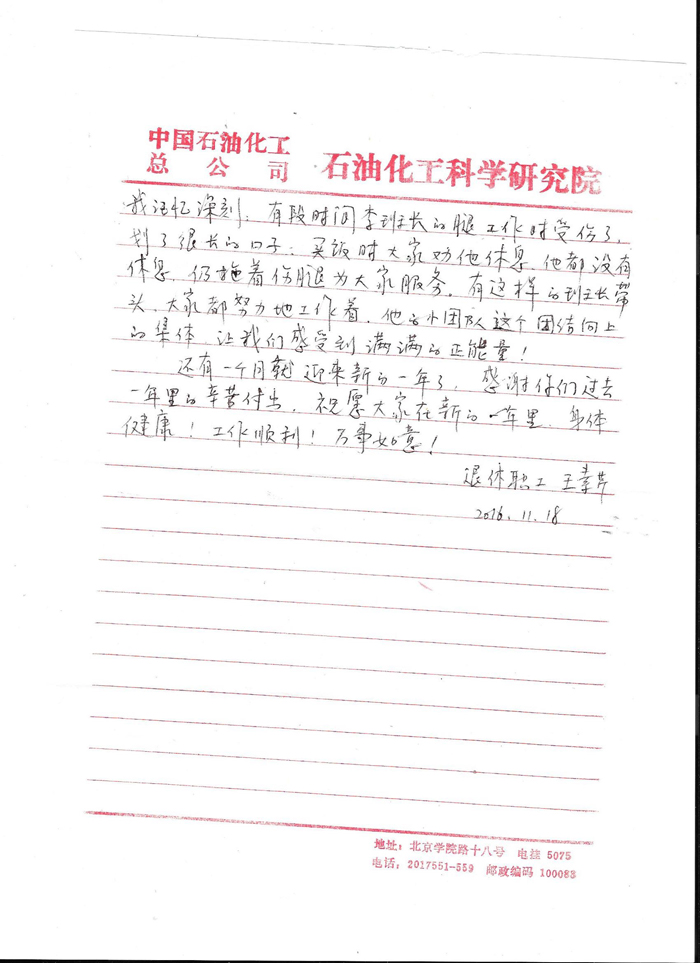 中国石油化工
总公司 石油化工科学研究院
我记忆深刻，有段时间李班长的腿工作时受伤了，
划了很长的口子，买饭时大家劝他休息，他都没有
休息，仍拖着伤腿为大家服务。有这样的班长带
头，大家都努力地工作着，他的小团队这个团结向上
的集体，让我们感受到满满的正能量！
还有一个月就迎来新的一年了，感谢你们过去
一年里的辛苦付出，祝愿大家在新的一年里，身体
健康！工作顺利！万事如意！
退休职工 王素芹
2016.11.18
地址：北京学院路十八号 电挂 5075
电话：2017551-559 邮政编码 100083